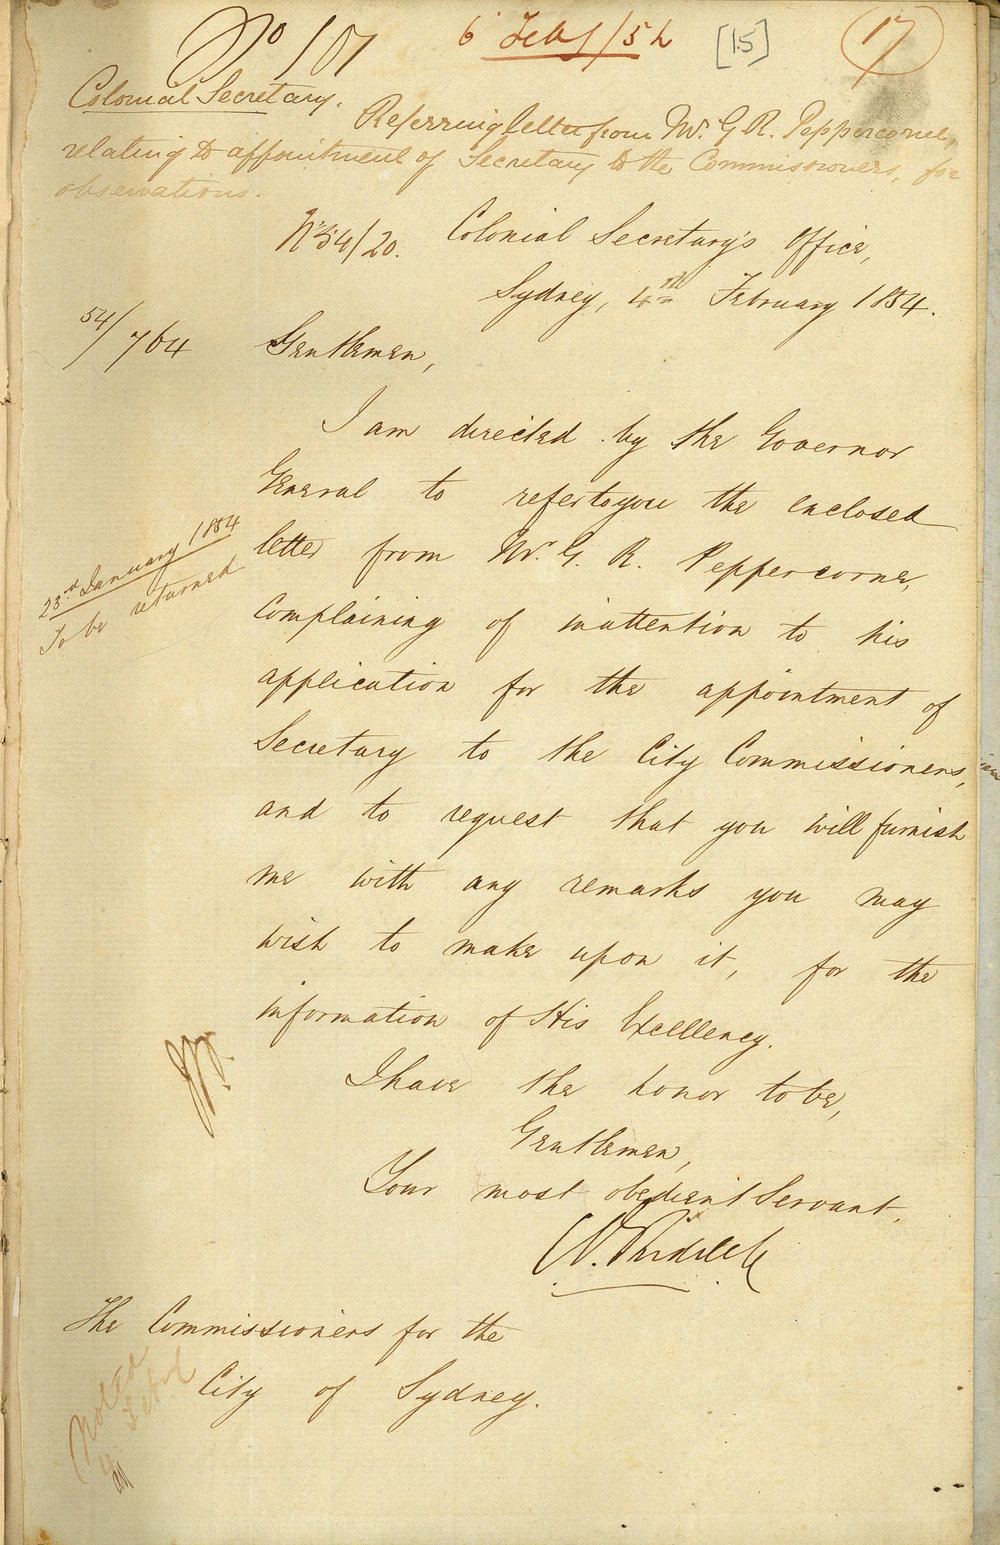 No 101
6 Feby/54
[15]
17
Colonial Secretary.
Referring letter from Mr. G. R. Peppercorne,
relating to appointment of Secretary to the Commissioners, for
observations.
No 54/20. Colonial Secretary's Office,
Sydney, 4th February 1854.
54/764
Gentlemen,
I am directed by the Governor
General to refer to you the enclosed
23rd January 1854
To be returned
letter from Mr. G. R. Peppercorne,
complaining of inattention to his
application for the appointment of
Secretary to the City Commissioners,
and to request that you will furnish
me with any remarks you may
wish to make upon it, for the
information of His Excellency.
I have the honor to be,
Gentlemen,
Your most obedient Servant,
The Commissioners for the
City of Sydney.
Noted